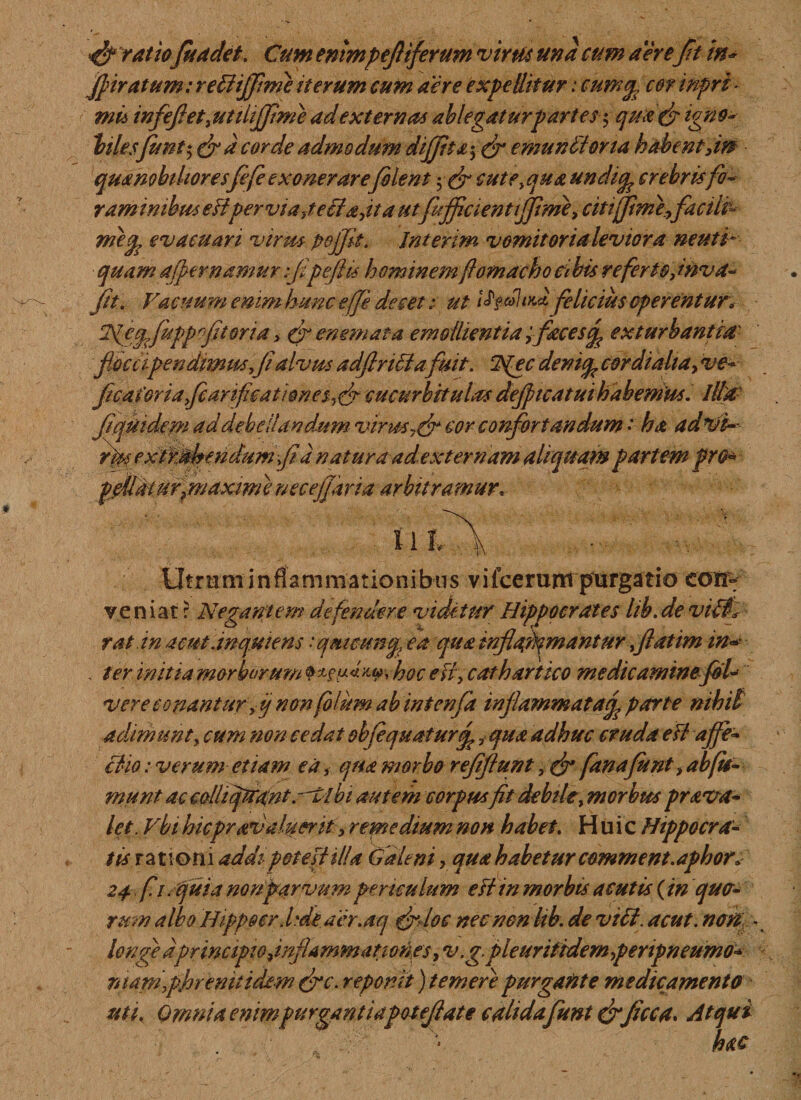 & ratio suadet. Cum enim pestiferum virus una cum aëre sit in-
spiratum: rectissimè iterum cum aëre expellitur: cumq; cor inpri-
mis infestet, utilissimè ad externas ablegatur partes; quæ & igno-
biles sunt; & à corde admodum dissitæ; & emunctoria habent, in
quæ nobiliores sese exonerare solent; & cute, quæ undiq; crebris fo-
raminibus est pervia, tectæ, ita ut sufficientissimè, citissimè, facili-
meq; evacuari virus possit. Interim vomitoria leviora neuti-
quam aspernamur: si pestis hominem stomacho cibis referto, inva-
sit. Vacuum enim hunc esse decet: ut felicius operentur.
Neq; suppositoria, & enemata emollientia; fæcesq; exturbantia
floccipendimus, si alvus adstricta fuit. Nec deniq; cordialia, ve-
sicatoria, scarificationes, & cucurbitulas despicatui habemus. Illa
siquidem ad debellandum virus, & cor confortandum: hæ ad vi-
rus extrahendum, si à natura ad externam aliquam partem pro-
pellatur, maximè necessaria arbitramur.
III.
Utrum inflammationibus viscerum purgatio con-
veniat? Negantem defendere videtur Hippocrates lib. de vict.
rat in acut. inquiens: quicunq; ea quæ inflammantur, statim in-
ter initia morborum hoc est, cathartico medicamine sol-
vere conantur, ij non solum ab intensa inflammataq; parte nihil
adimunt, cum non cedat obsequaturq;, quæ adhuc cruda est affe-
ctio: verum etiam ea, quæ morbo resistunt, & sana sunt, absu-
munt ac colliquant. Ubi autem corpus fit debile, morbus præva-
let. Vbi hic prævaluerit, remedium non habet. Huic Hippocra-
tis rationi addi potest illa Galeni, quæ habetur comment. aphor.
24. s. 1. quia non parvum periculum est in morbis acutis (in quo-
rum albo Hippocr. l. de aër. aq & loc nec non lib. de vict. acut. non
longè à principio, inflammationes, v.g. pleuritidem, peripneumo-
niam, phrenitidem &c. reponit) temerè purgante medicamento
uti. Omnia enim purgantia potestate calida sunt & sicca. Atqui
hæc